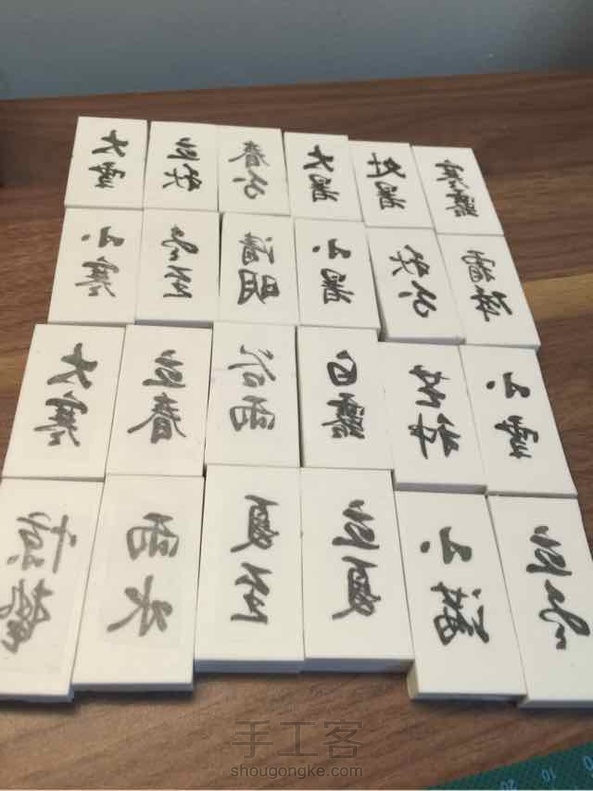 大雪
立秋
春分
大暑
处暑
寒露
小寒
冬至
清明
小暑
秋分
霜降
大寒
立春
谷雨
白露
芒种
小雪
惊蛰
雨水
夏至
立夏
小满
立冬
手工客
shougongke.com
20 10